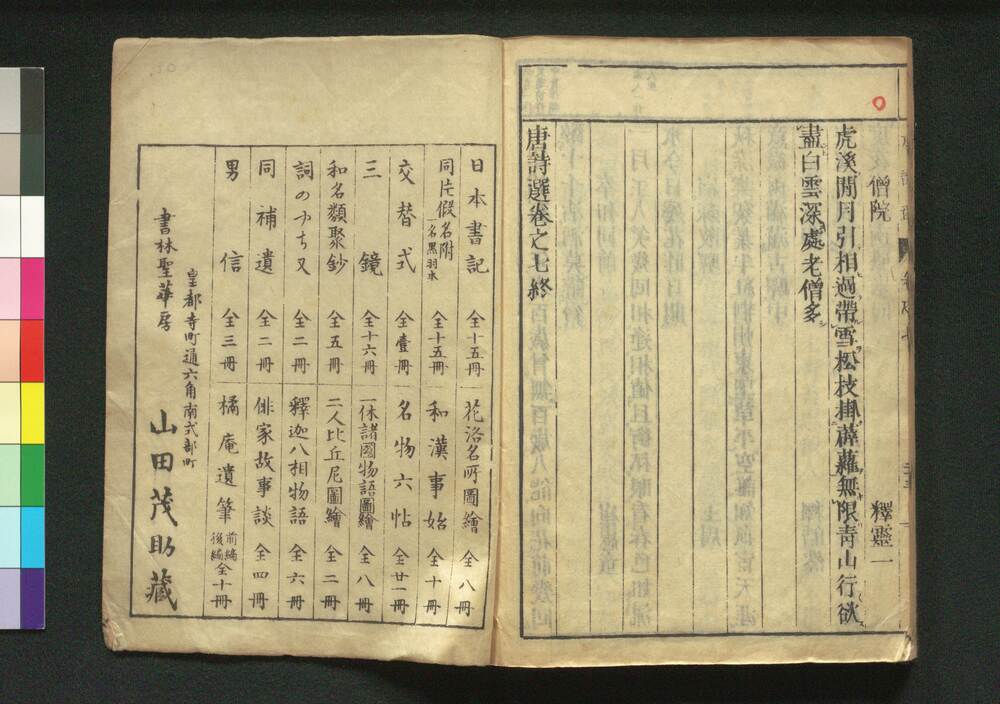 僧院
釋靈一
虎溪閒月引相過帶雪松枝掛薜蘿無限青山行欲
盡白雲深處老僧多
唐詩選卷之七終
日本書記 全十五冊
花洛名所圖繪 全八冊
同片假名附 一名黒羽本 全十五冊
和漢事始 全十冊
交替式 全壹冊
名物六帖 全廿一冊
三鏡 全十六冊
一休諸國物語圖繪 全八冊
和名類聚鈔 全五冊
二人比丘尼圖繪 全二冊
詞のやちまた 全二冊
釋迦八相物語 全六冊
同補遺 全二冊
俳家故事談 全四冊
男信 全三冊
橘庵遺筆 前編後編 全十冊
皇都寺町通六角南式部町
書林聖華房 山田茂助藏